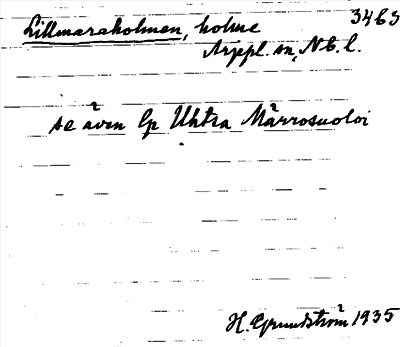 Lillmaraholmen, holme 3463
Arjepl. sn, Nb. l.
se även lp Uhtsa Márrosuoloi
H. Grundström 1935